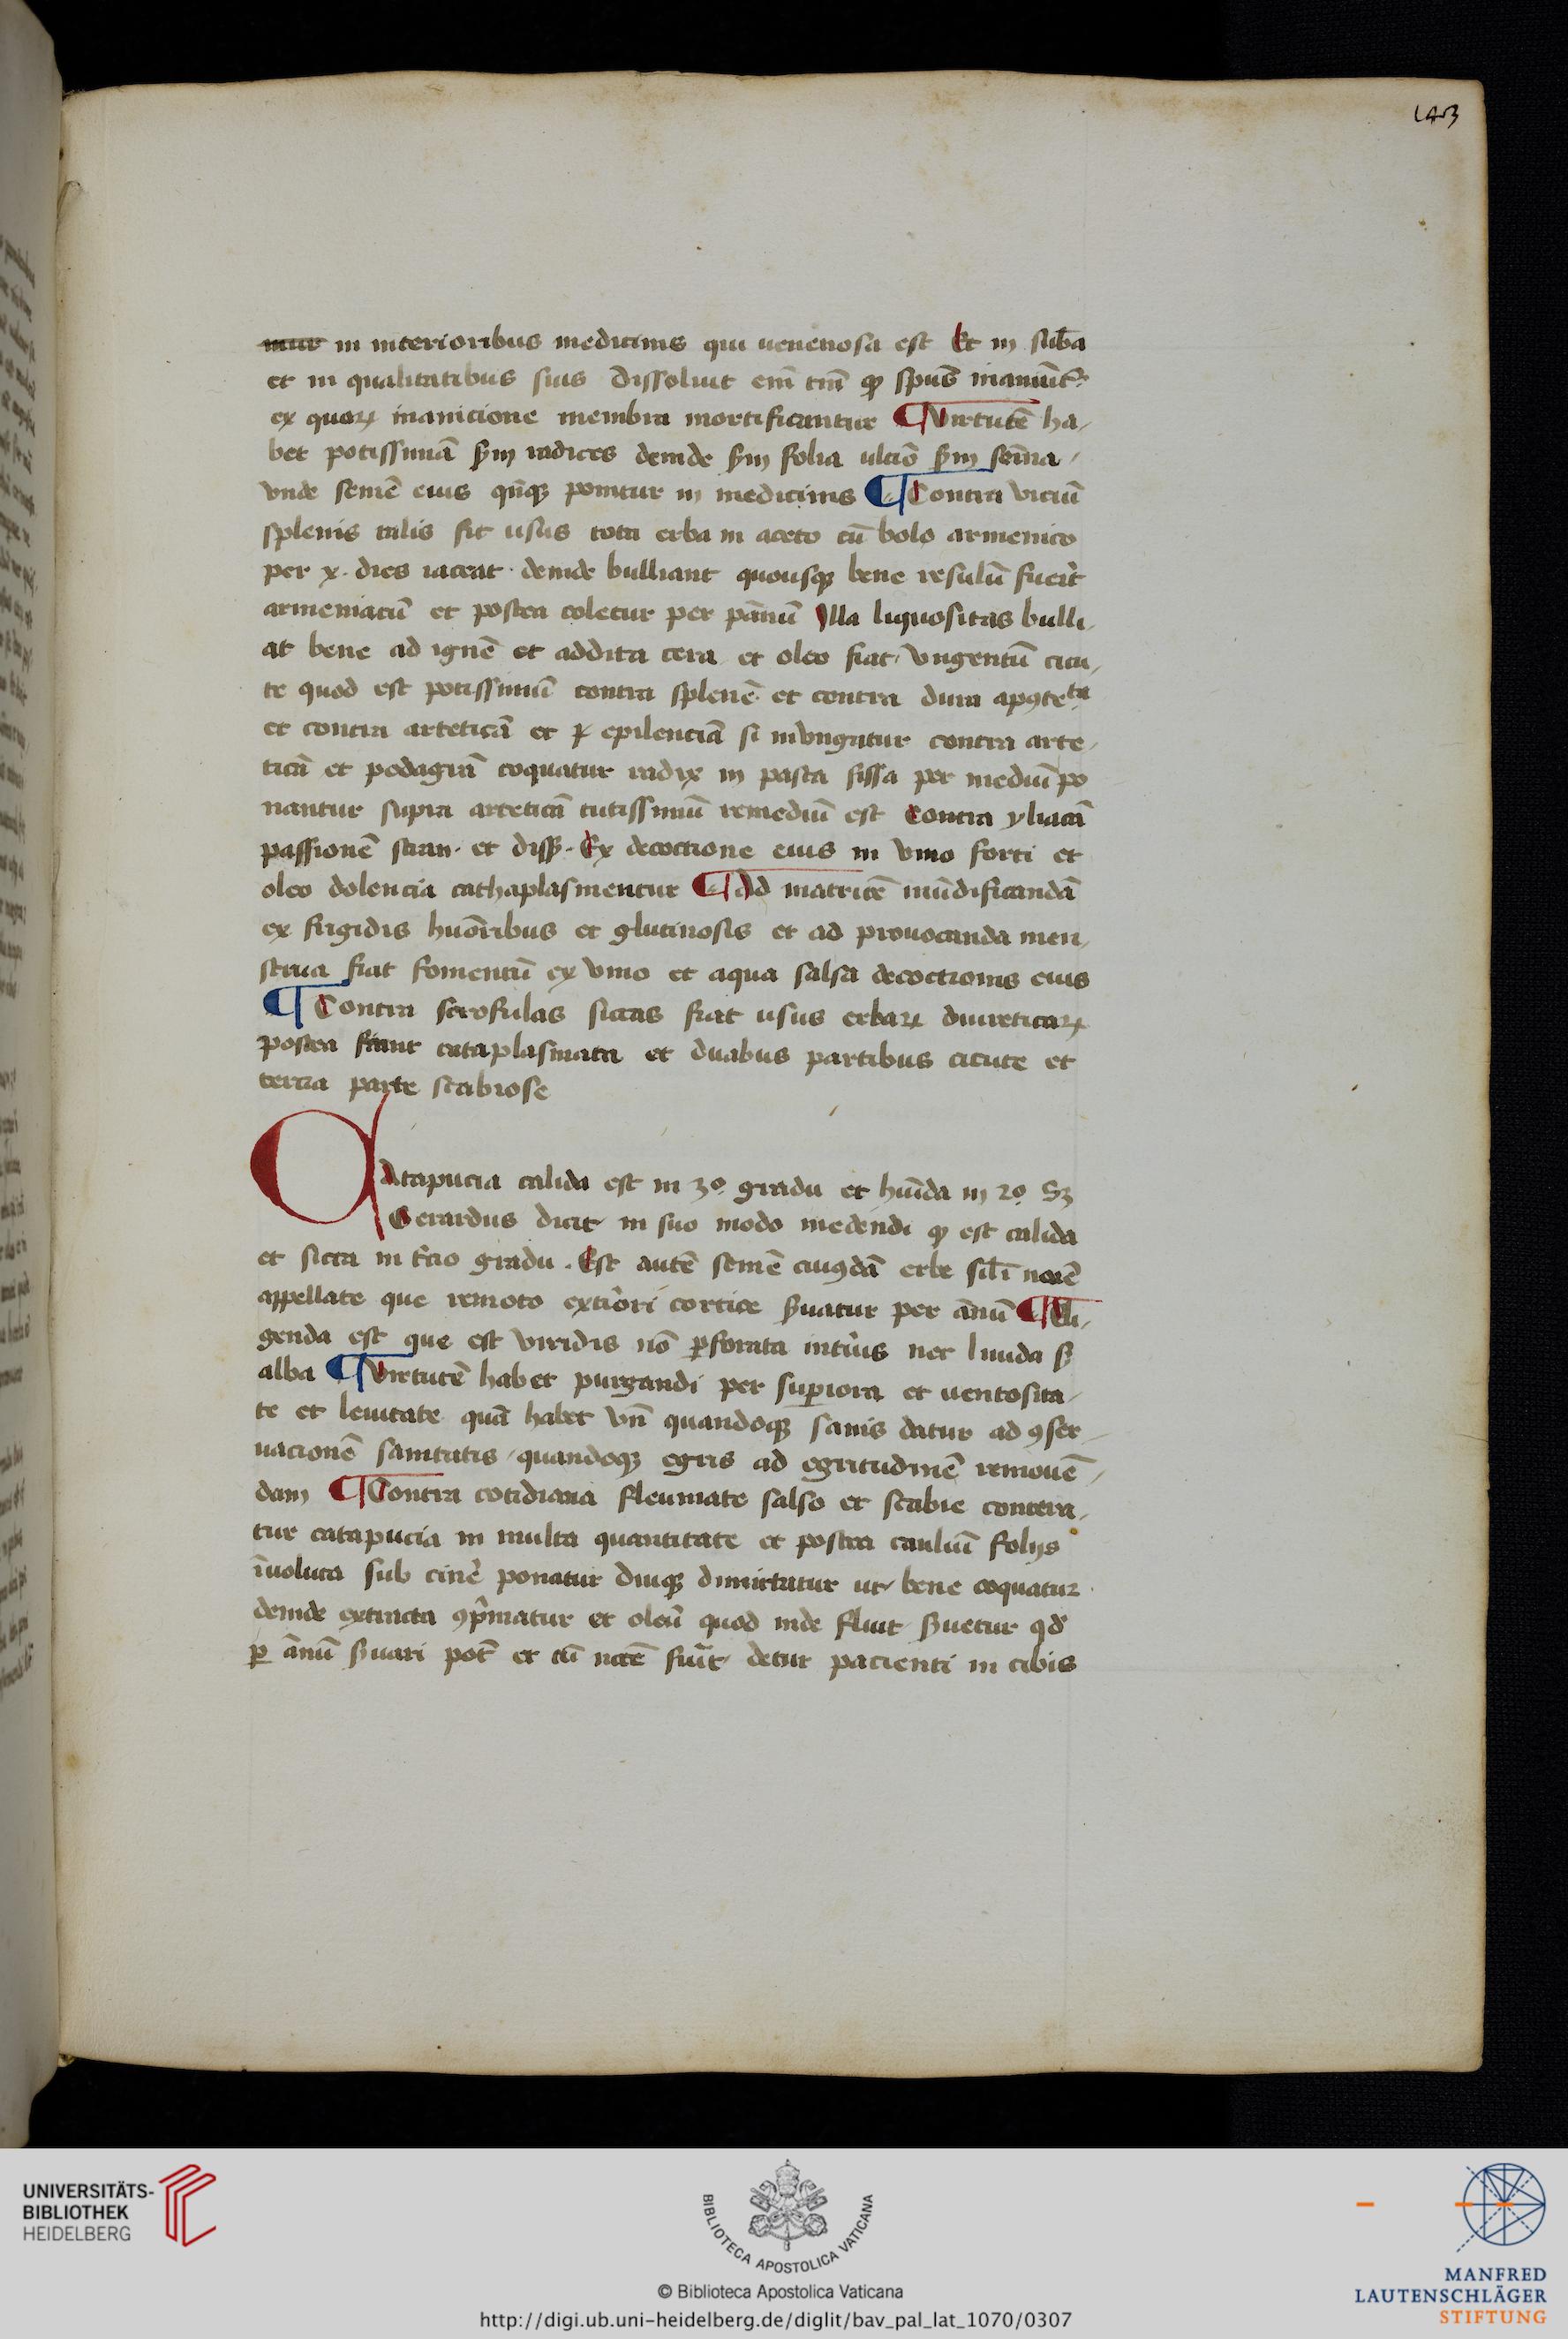 143
in interioribus medicinis qui uenenosa est Et in sub̄a
et in qualitatibus suis dissoluit em̄ tm̄ spūs
ex quaꝝ inanicione membra mortificantur ¶ Virtutē ha-
bet potissimā sm̄ radices deinde sm̄ folia ulciō sm̄ semīa
vnde semē eius qn̄qꝫ ponitur in medicinis ¶ Contra viciū
splenis talis fit usus tota erba in aceto cū bolo armenico
per x. dies iaceat deinde bulliant quousqꝫ bene resolū fuerit
armeniacū et postea coletur per pānū Illa liquositas bulli-
at bene ad ignē et addita cera et oleo fiat vngentū cicu-
te quod est potissimū contra splenē et contra dura
et contra arteticā et epilenciā si invngatur contra arte-
ticā et podagrā coquatur radix in pasta fissa per mediū po
nantur supra arteticā tutissimū remediū est Contra yliacā
passionē stran. et diss. Ex decoctione eius in vino forti et
oleo dolencia cathaplasmentur ¶ Ad matricē mūdificandā
ex frigidis huōribus et glutinosis et ad prouocanda men-
strua fiat fomentū ex vino et aqua salsa decoctionis eius
¶ Contra scrofulas siccas fiat usus erbaꝝ diureticaꝝ
postea fiant cataplasmata et duabus partibus cicute et
tercia parte scabiose
Catapucia calida est in 3º gradu et hūida in 2º Sꝫ
Gerardus dicit in suo modo medendi ꝙ est calida
et sicca in t̄cio gradu. Est autē semē cuiꝰdā erbe sil̄i noīē
appellate que remoto exti̓ori cortice s̓uatur per ānū ¶ Eli-
genda est que est viridis nō ꝑforata intīus nec liuida sꝫ
alba ¶ Virtutē habet purgandi per superiora et uentosita-
te et leuitate quā habet Vn̄ quandoqꝫ sanis datur ad ꝯser-
uacionē sanitatis quandoqꝫ egris ad egritudinē remouē-
dam ¶ Contra cotidiana fleumate salso et scabie contera-
tur catapucia in multa quantitate et postea cauliū folijs
īuoluta sub cine̓ ponatur diuqꝫ dimittatur ut bene coquatur
deinde extracta ꝯp̄matur et oleū quod inde fluit s̓uetur qd̓
ꝑ ānū s̓uari pot̄ et cū fuīt detur pacienti in cibis
UNIVERSITÄTS-
BIBLIOTHEK
HEIDELBERG
BIBLIOTECA APOSTOLICA VATICANA
© Biblioteca Apostolica Vaticana
http://digi.ub.uni-heidelberg.de/diglit/bav_pal_lat_1070/0307
MANFRED
LAUTENSCHLÄGER
STIFTUNG